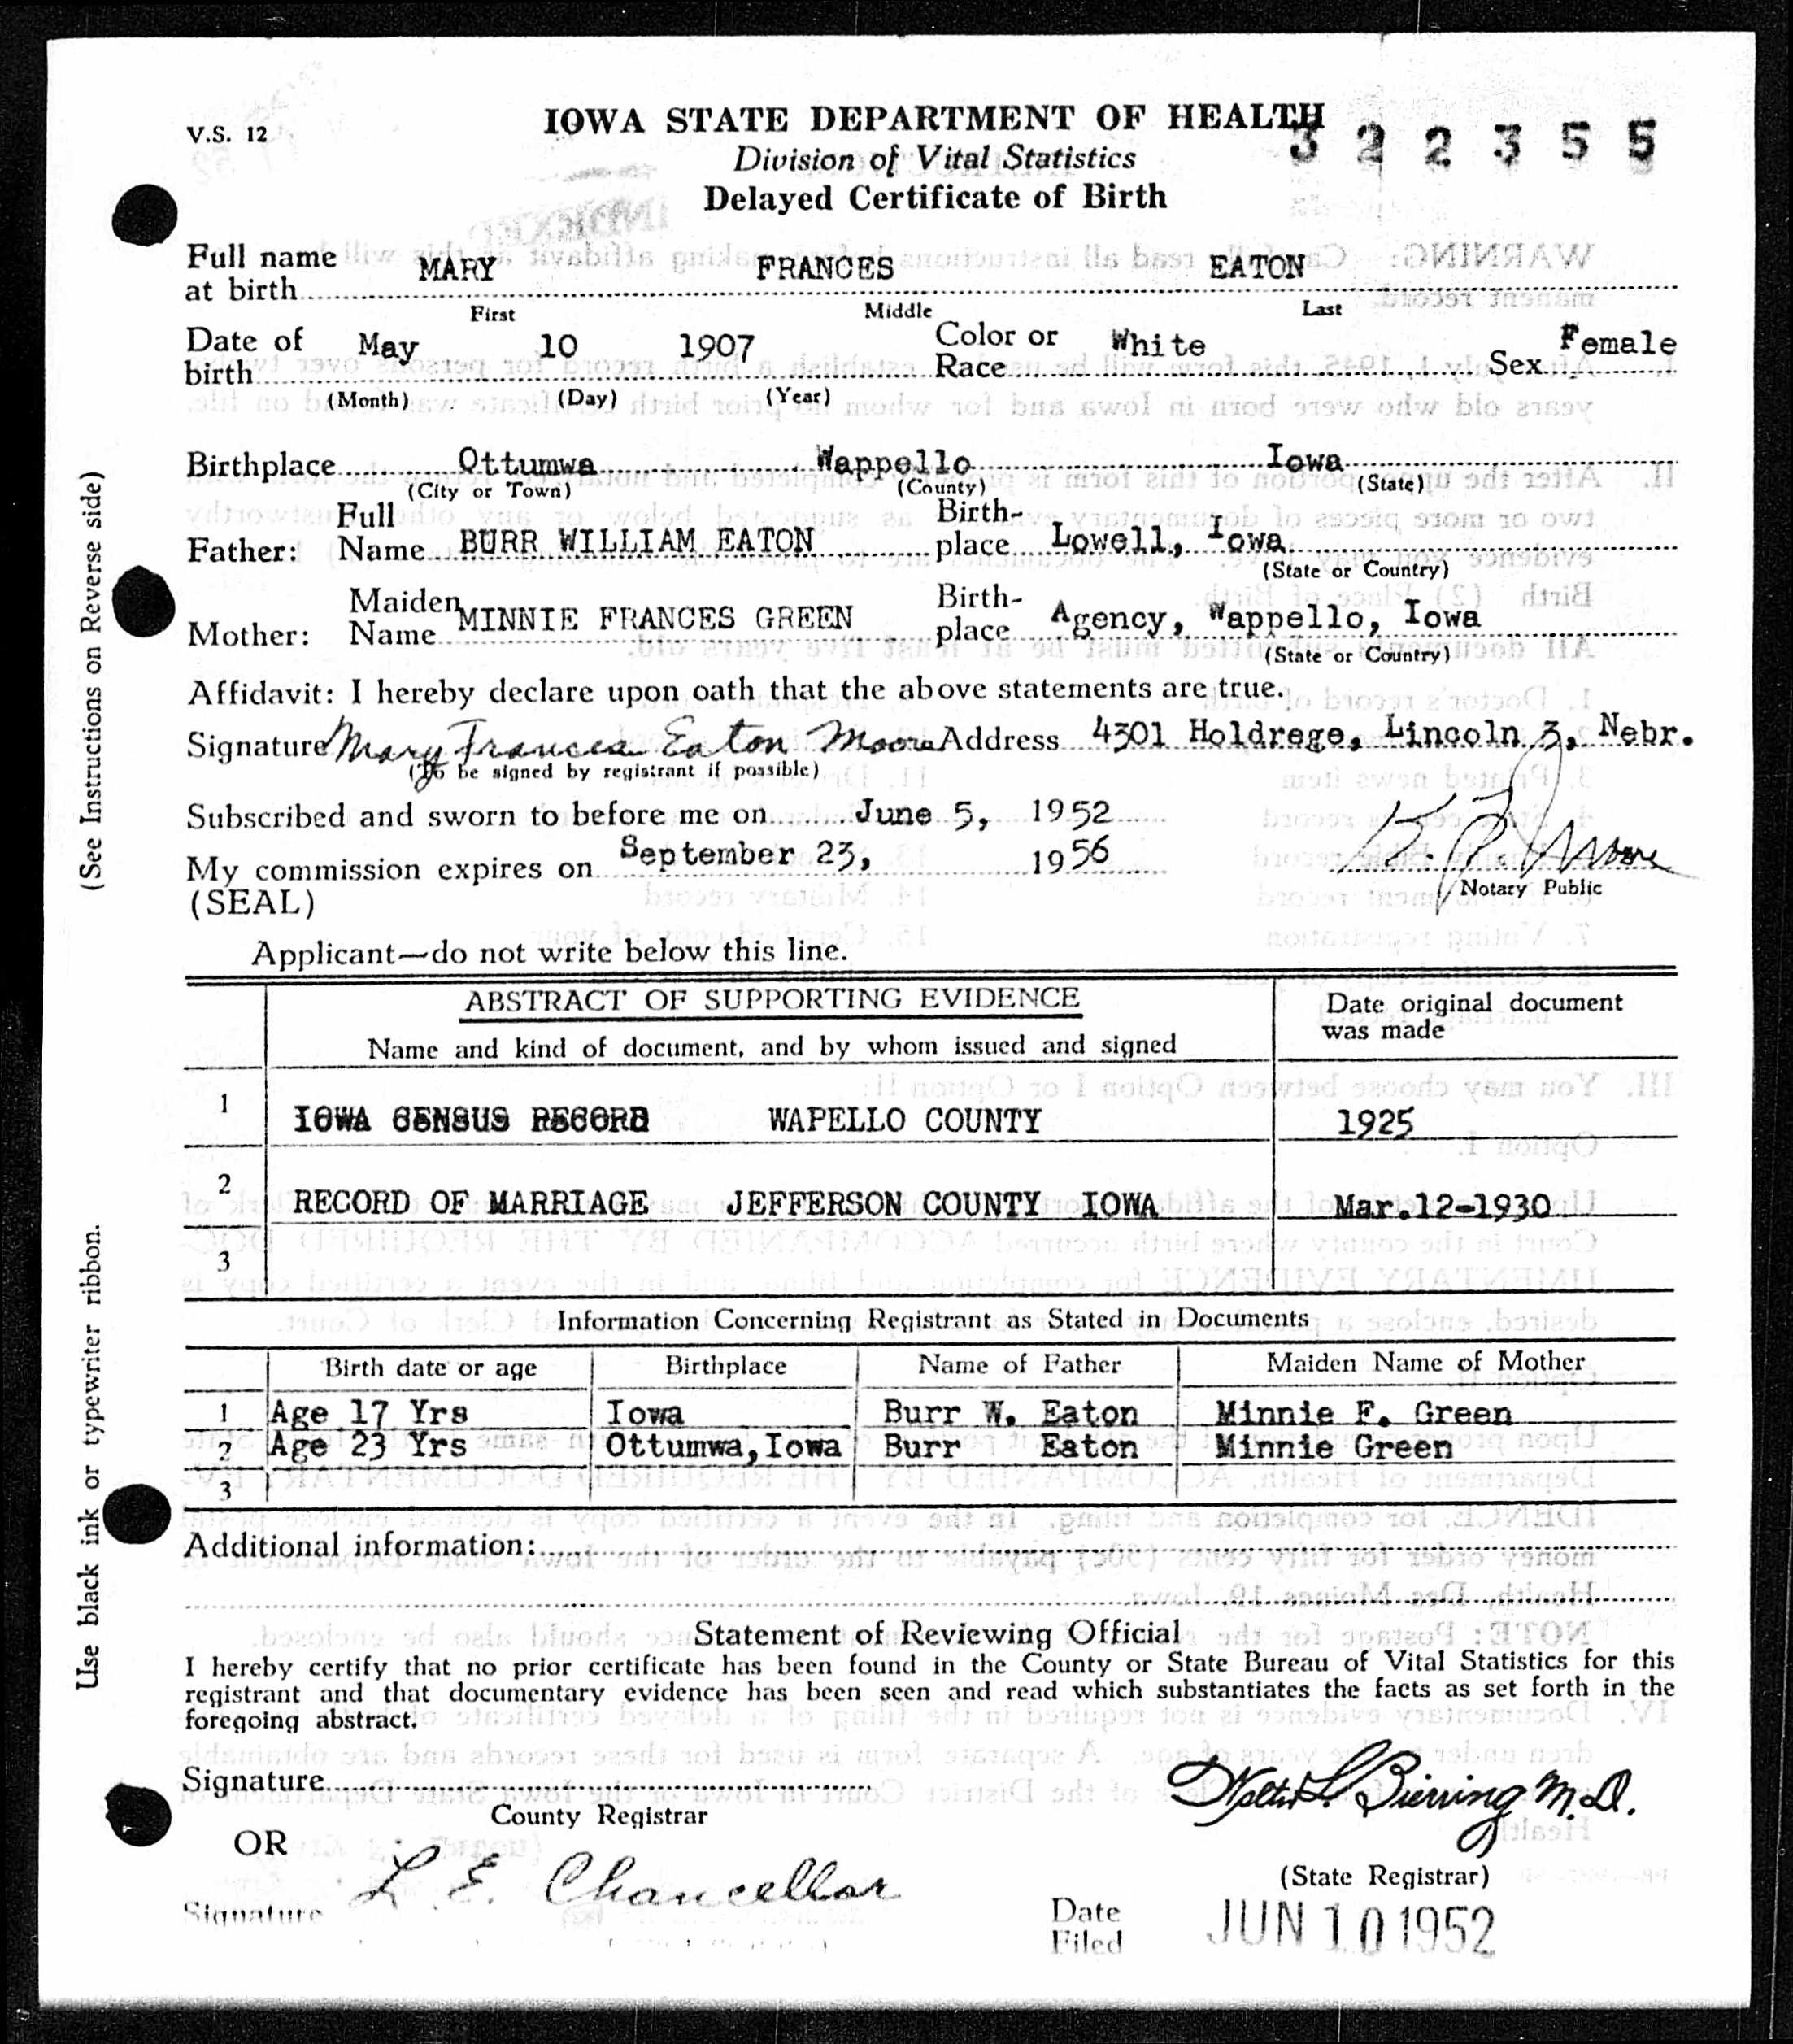 V.S. 12
IOWA STATE DEPARTMENT OF HEALTH
322355
Division of Vital Statistics
Delayed Certificate of Birth
Full name at birth MARY FRANCES EATON
First Middle Last
Date of birth May 10 1907 Color or Race White Sex Female
(Month) (Day) (Year)
Birthplace Ottumwa Wappello Iowa
(City or Town) (County) (State)
Father: Full Name BURR WILLIAM EATON Birth-place Lowell, Iowa
(State or Country)
Mother: Maiden Name MINNIE FRANCES GREEN Birth-place Agency, Wappello, Iowa
(State or Country)
Affidavit: I hereby declare upon oath that the above statements are true.
Signature Mary Frances Eaton Moore Address 4301 Holdrege, Lincoln 3, Nebr.
(To be signed by registrant if possible)
Subscribed and sworn to before me on June 5, 1952
My commission expires on September 23, 1956
Notary Public
(SEAL)
Applicant—do not write below this line.
ABSTRACT OF SUPPORTING EVIDENCE
Name and kind of document, and by whom issued and signed
Date original document was made
1 IOWA CENSUS RECORD WAPELLO COUNTY 1925
2 RECORD OF MARRIAGE JEFFERSON COUNTY IOWA Mar.12-1930
3
Information Concerning Registrant as Stated in Documents
Birth date or age Birthplace Name of Father Maiden Name of Mother
1 Age 17 Yrs Iowa Burr W. Eaton Minnie F. Green
2 Age 23 Yrs Ottumwa,Iowa Burr Eaton Minnie Green
3
Additional information:
Statement of Reviewing Official
I hereby certify that no prior certificate has been found in the County or State Bureau of Vital Statistics for this
registrant and that documentary evidence has been seen and read which substantiates the facts as set forth in the
foregoing abstract.
Signature
County Registrar
Walter L. Bierring M.D.
OR
(State Registrar)
Signature L. E. Chancellor
Date Filed JUN 10 1952
(See Instructions on Reverse side)
Use black ink or typewriter ribbon.